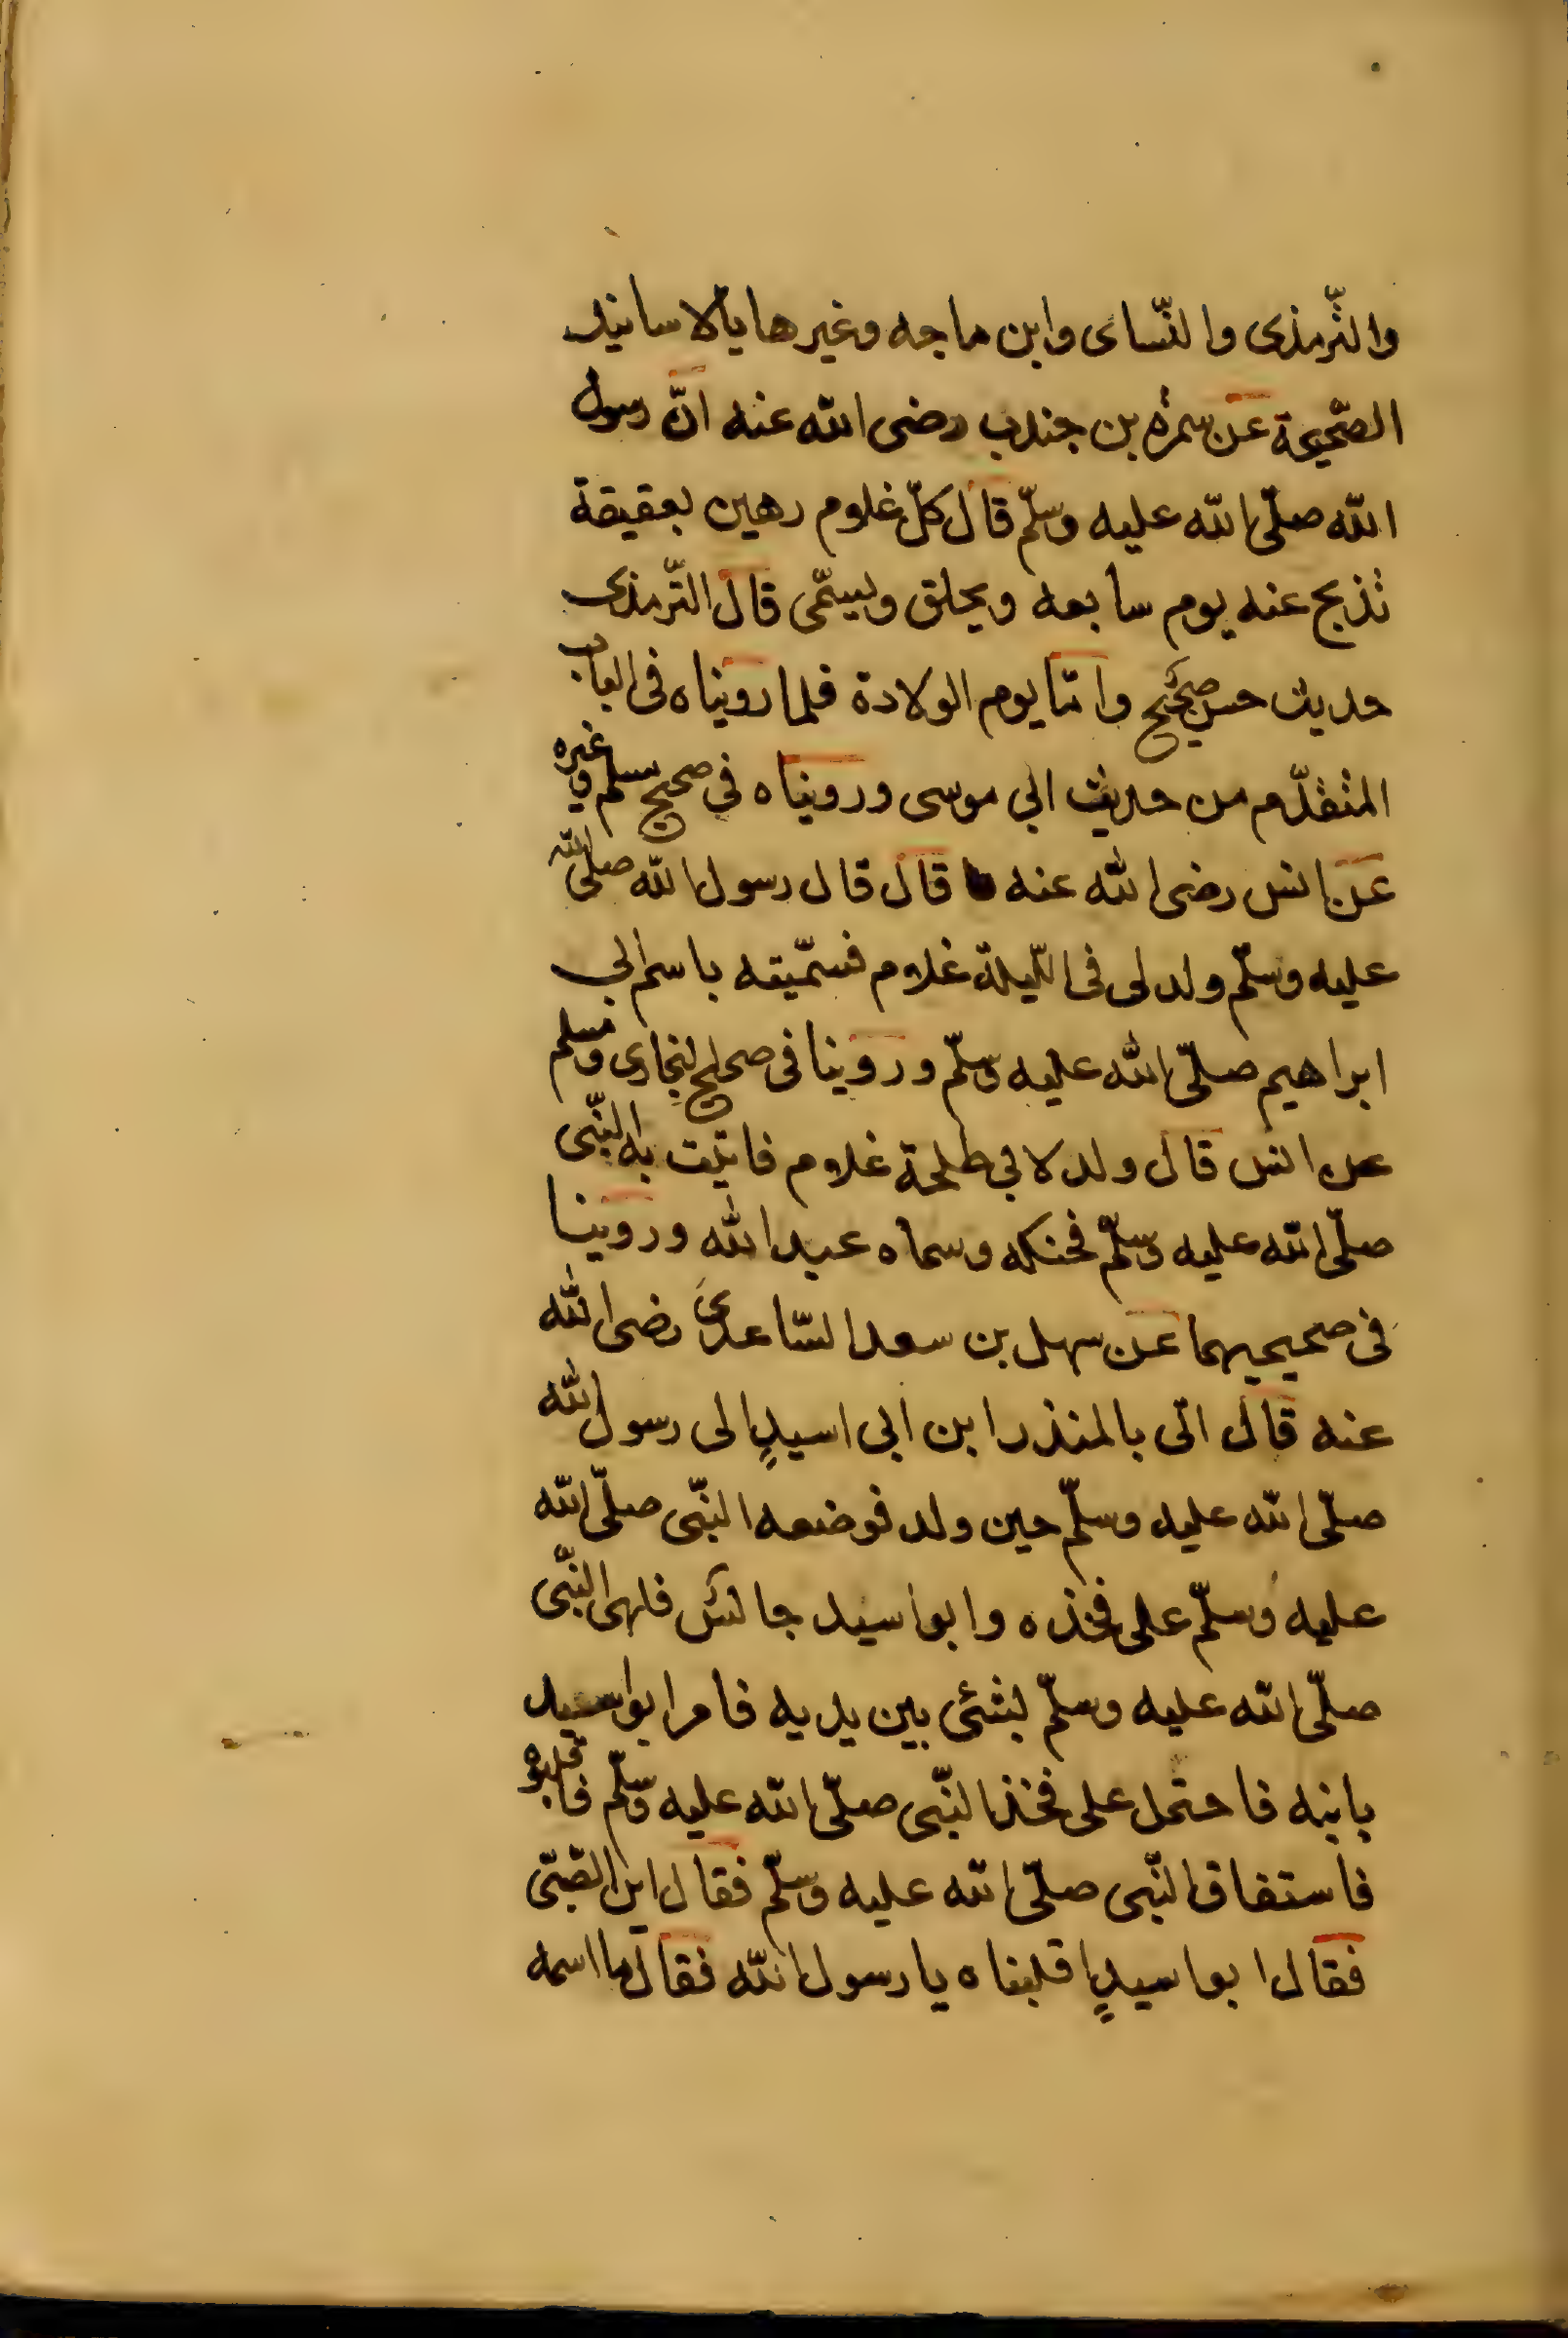 والتّرمذى والنّساى وابن ماجه وغيرها بالاسانيد
الصّحيحة عن سمرة بن جندب رضى الله عنه انّ رسول
الله صلّى الله عليه وسلّم قال كلّ غلوم رهين بعقيقة
تذبح عنه يوم سابعه ويحلق ويسمّى قال التّرمذى
حديث حسن صحيح وامّا يوم الولادة فلما رويناه فى الباب
المتقدّم من حديث ابى موسى ورويناه فى صحيح مسلم وغيره
عن انس رضى الله عنه قال قال رسول الله صلى الله
عليه وسلّم ولد لى فى اللّيلة غلام فسمّيته باسم ابى
ابراهيم صلّى الله عليه وسلّم وروينا فى صحيح البخارى ومسلم
عن انس قال ولد لابى طلحة غلام فاتيت به النّبى
صلّى الله عليه وسلّم فحنكه وسماه عبد الله وروينا
فى صحيحيهما عن سهل بن سعد السّاعدى رضى الله
عنه قال اتى بالمنذر ابن ابى اسيدٍ الى رسول الله
صلّى الله عليه وسلّم حين ولد فوضعه النّبى صلّى الله
عليه وسلّم على فخذه وابو اسيد جالس فلهى النّبى
صلّى الله عليه وسلّم بشئى بين يديه فامر ابو اسيد
بابنه فاحتمل على فخذ النّبى صلّى الله عليه وسلّم فاقلبوه
فاستفاق النّبى صلّى الله عليه وسلّم فقال اين الصّبّى
فقال ابو اسيدٍ اقلبناه يا رسول الله فقال ما اسمه